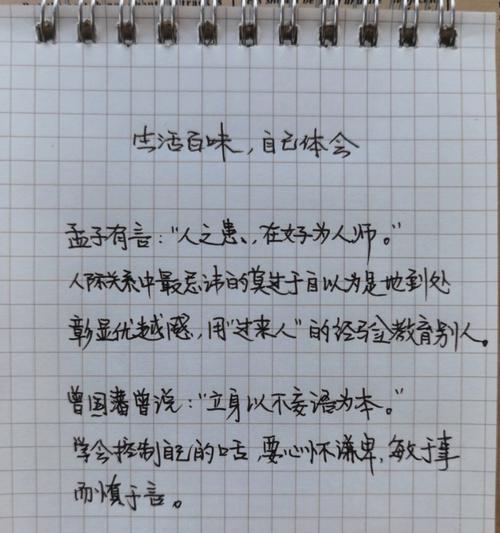 生活百味,自己体会
孟子有言:“人之患,在好为人师。”
人际关系中最忌讳的莫过于自以为是地到处
彰显优越感,用“过来人”的经验教育别人。
曾国藩曾说:“立身以不妄语为本。”
学会控制自己的话,要心怀谦卑,敏于事
而慎于言。